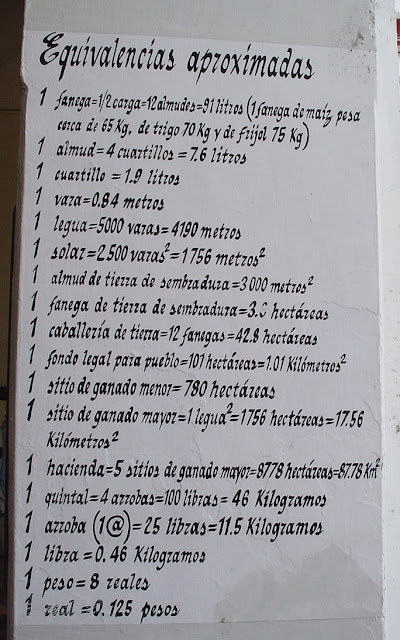 Equivalencias aproximadas
1 fanega=1/2 carga=12 almudes=91 litros (1 fanega de maíz pesa
cerca de 65 Kg, de trigo 70 Kg y de frijol 75 Kg)
1 almud = 4 cuartillos = 7.6 litros
1 cuartillo = 1.9 litros
1 vara=0.84 metros
1 legua=5000 varas=4190 metros
1 solar=2.500 varas²=1756 metros²
1 almud de tierra de sembradura=3000 metros²
1 fanega de tierra de sembradura=3. hectáreas
1 caballería de tierra=12 fanegas=42.8 hectáreas
1 fondo legal para pueblo=101 hectáreas=1.01 Kilómetros²
1 sitio de ganado menor= 780 hectáreas
1 sitio de ganado mayor=1 legua²=1756 hectáreas=17.56
Kilómetros²
1 hacienda=5 sitios de ganado mayor=8778 hectáreas=87.78 Km²
1 quintal=4 arrobas=100 libras= 46 Kilogramos
1 arroba (1@)=25 libras=11.5 Kilogramos
1 libra =0.46 Kilogramos
1 peso=8 reales
1 real =0.125 pesos